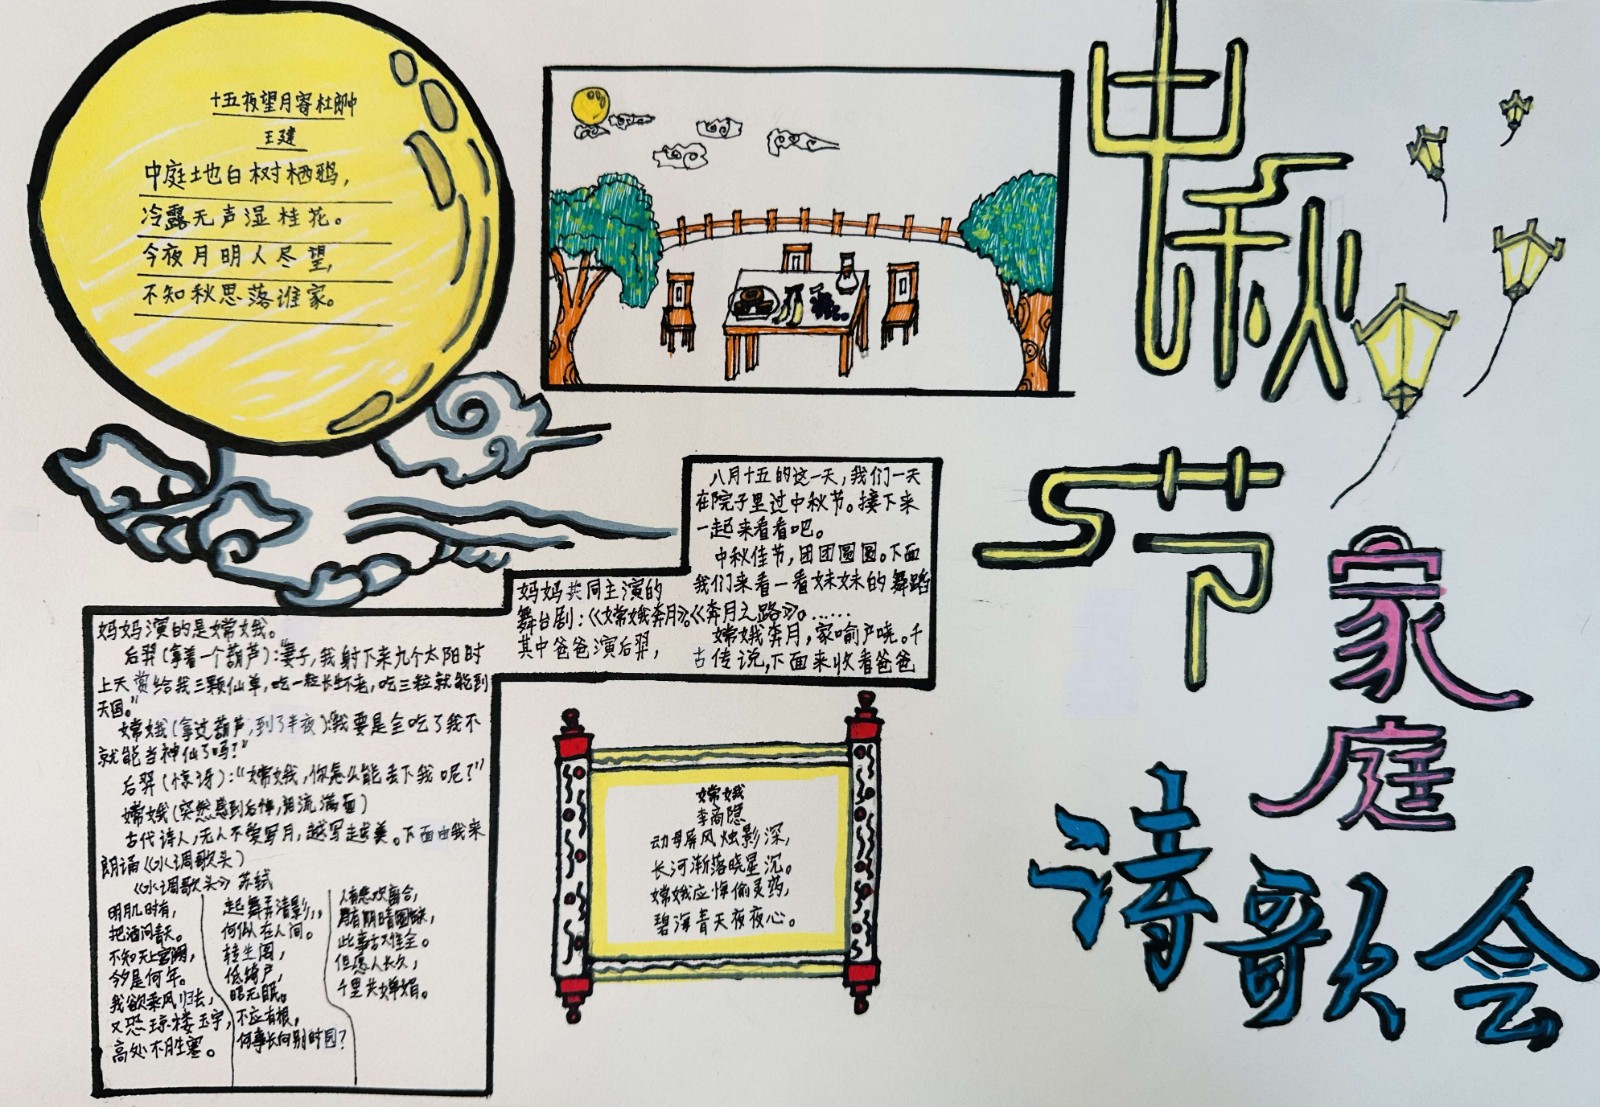 中秋
节
家庭
诗歌会
十五夜望月寄杜郎中
王建
中庭地白树栖鸦，
冷露无声湿桂花。
今夜月明人尽望，
不知秋思落谁家。
八月十五的这一天，我们一天
在院子里过中秋节。接下来
一起来看看吧。
中秋佳节，团团圆圆。下面
我们来看一看妹妹的舞蹈
《奔月之路》。……
嫦娥奔月，家喻户晓。千
古传说，下面来收看爸爸
妈妈共同主演的
舞台剧：《嫦娥奔月》
其中爸爸演后羿，
妈妈演的是嫦娥。
后羿（拿着一个葫芦）：“妻子，我射下来九个太阳时
上天赏给我三颗仙单，吃一粒长生不老，吃三粒就能到
天国。”
嫦娥（拿过葫芦，到了半夜）：“我要是全吃了我不
就能当神仙了吗？”
后羿（惊讶）：“嫦娥，你怎么能丢下我呢？”
嫦娥（突然感到后悔，泪流满面）
古代诗人，无人不爱写月，越写走越美。下面由我来
朗诵《水调歌头》
《水调歌头》 苏轼
明月几时有，
把酒问青天。
不知天上宫阙，
今夕是何年。
我欲乘风归去，
又恐琼楼玉宇，
高处不胜寒。
起舞弄清影，
何似在人间。
转朱阁，
低绮户，
照无眠。
不应有恨，
何事长向别时圆？
人有悲欢离合，
月有阴晴圆缺，
此事古难全。
但愿人长久，
千里共婵娟。
嫦娥
李商隐
动母屏风烛影深，
长河渐落晓星沉。
嫦娥应悔偷灵药，
碧海青天夜夜心。